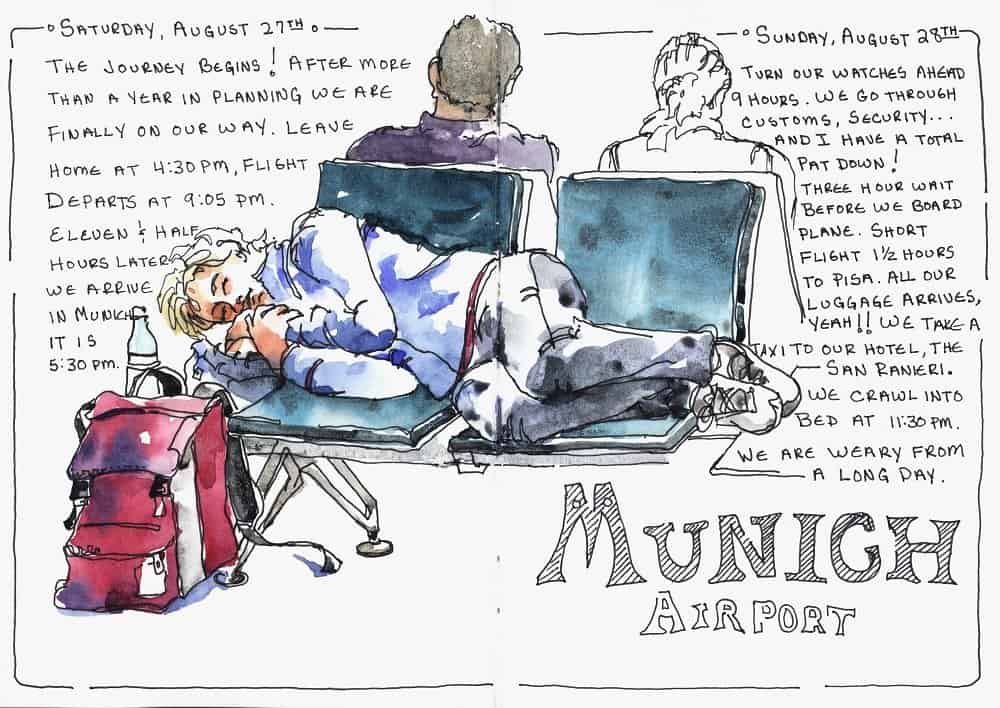 Saturday, August 27th
The journey begins! After more
than a year in planning we are
finally on our way. Leave
home at 4:30 pm, flight
departs at 9:05 pm.
Eleven & half
hours later
we arrive
in Munich
it is
5:30 pm.
Sunday, August 28th
Turn our watches ahead
9 hours. We go through
customs, security...
and I have a total
pat down!
Three hour wait
before we board
plane. Short
flight 1½ hours
to Pisa. All our
luggage arrives,
yeah!! We take a
taxi to our hotel, the
San Ranieri.
We crawl into
bed at 11:30 pm.
We are weary from
a long day.
Munich
Airport